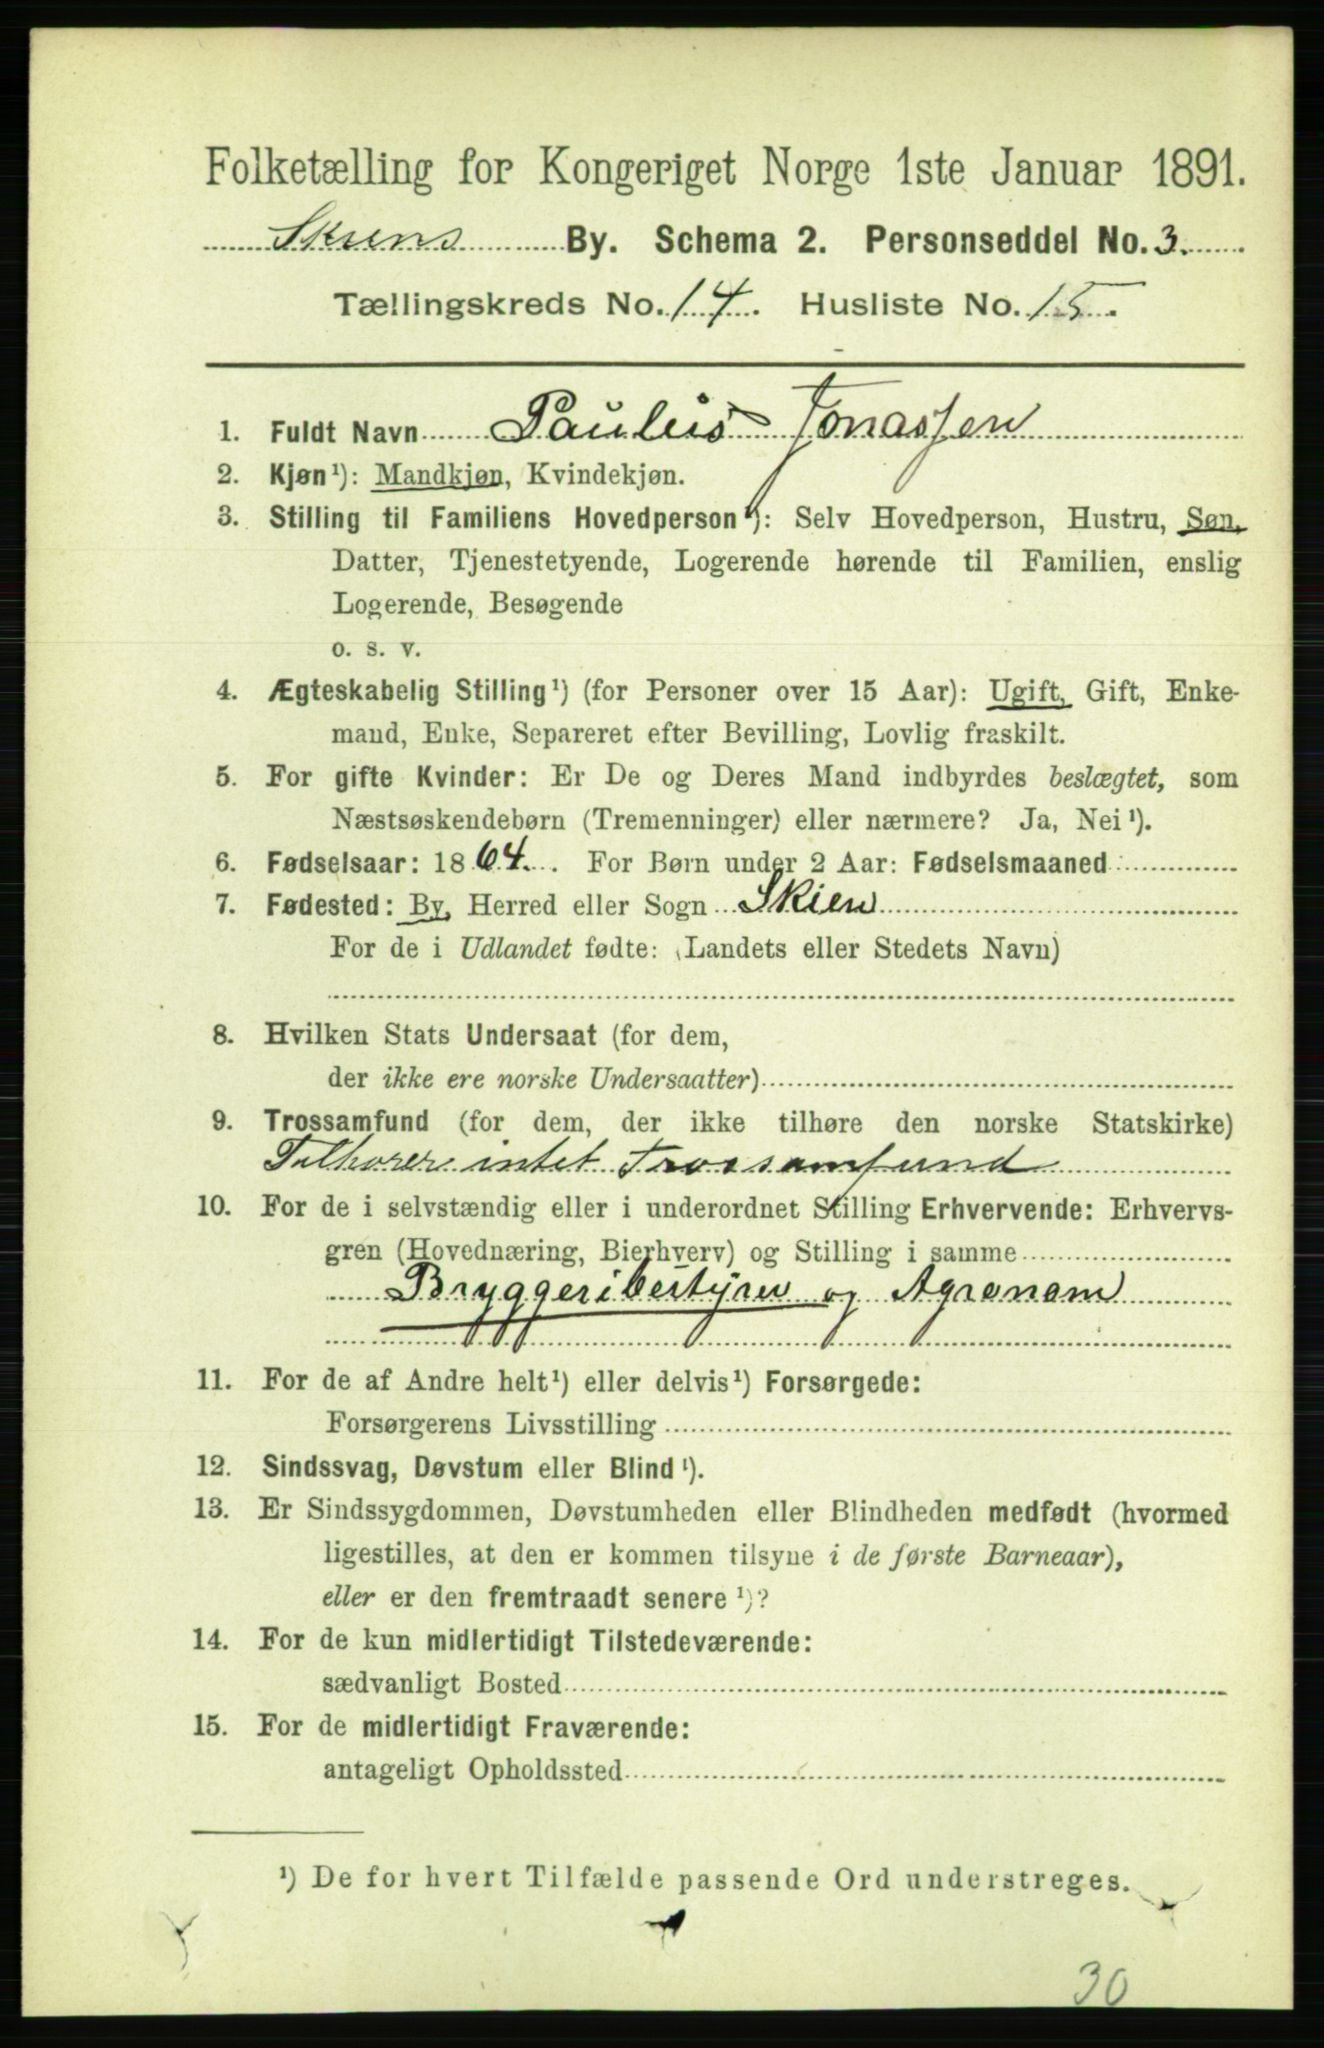 Folketælling for Kongeriget Norge 1ste Januar 1891.
Skiens By. Schema 2. Personseddel No. 3.
Tællingskreds No. 14. Husliste No. 15.
1. Fuldt Navn Paulus Jonassen
2. Kjøn¹): Mandkjøn, Kvindekjøn.
3. Stilling til Familiens Hovedperson¹): Selv Hovedperson, Hustru, Søn,
Datter, Tjenestetyende, Logerende hørende til Familien, enslig
Logerende, Besøgende
o. s. v.
4. Ægteskabelig Stilling¹) (for Personer over 15 Aar): Ugift, Gift, Enke-
mand, Enke, Separeret efter Bevilling, Lovlig fraskilt.
5. For gifte Kvinder: Er De og Deres Mand indbyrdes beslægtet, som
Næstsøskendebørn (Tremenninger) eller nærmere? Ja, Nei¹).
6. Fødselsaar: 1864. For Børn under 2 Aar: Fødselsmaaned
7. Fødested: By, Herred eller Sogn Skien
For de i Udlandet fødte: (Landets eller Stedets Navn)
8. Hvilken Stats Undersaat (for dem,
der ikke ere norske Undersaatter)
9. Trossamfund (for dem, der ikke tilhøre den norske Statskirke)
Tilhører intet Trossamfund
10. For de i selvstændig eller i underordnet Stilling Erhvervende: Erhvervs-
gren (Hovednæring, Bierhverv) og Stilling i samme
Bryggeribestyrer og Agronom
11. For de af Andre helt¹) eller delvis¹) Forsørgede:
Forsørgerens Livsstilling
12. Sindssvag, Døvstum eller Blind¹).
13. Er Sindssygdommen, Døvstumheden eller Blindheden medfødt (hvormed
ligestilles, at den er kommen tilsyne i de første Barneaar),
eller er den fremtraadt senere¹)?
14. For de kun midlertidigt Tilstedeværende:
sædvanligt Bosted
15. For de midlertidigt Fraværende:
antageligt Opholdssted
¹) De for hvert Tilfælde passende Ord understreges.
30